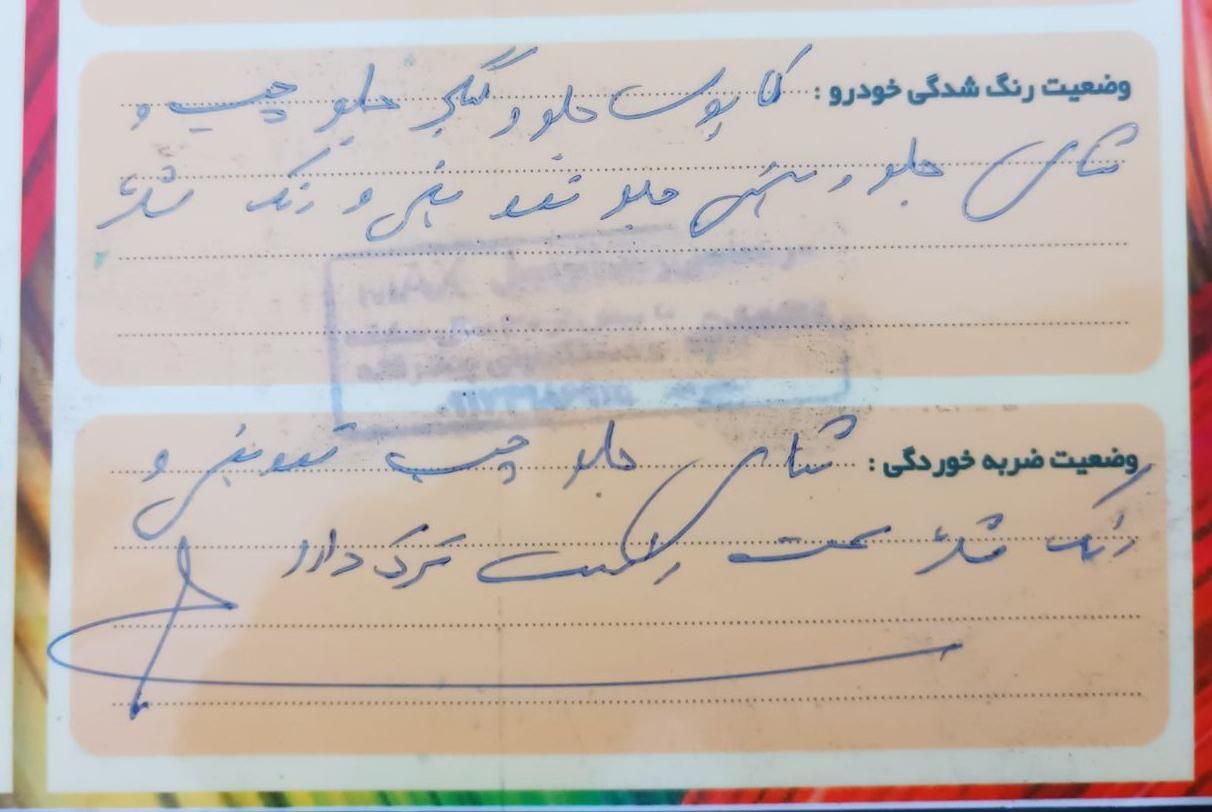 وضعیت رنگ شدگی خودرو : کاپوت جلو و گلگیر جلو چپ و
شاسی جلو و سینی جلو تعویض و رنگ شده
وضعیت ضربه خوردگی : شاسی جلو چپ تعویض و
رنگ شده سمت راست ترک دارد